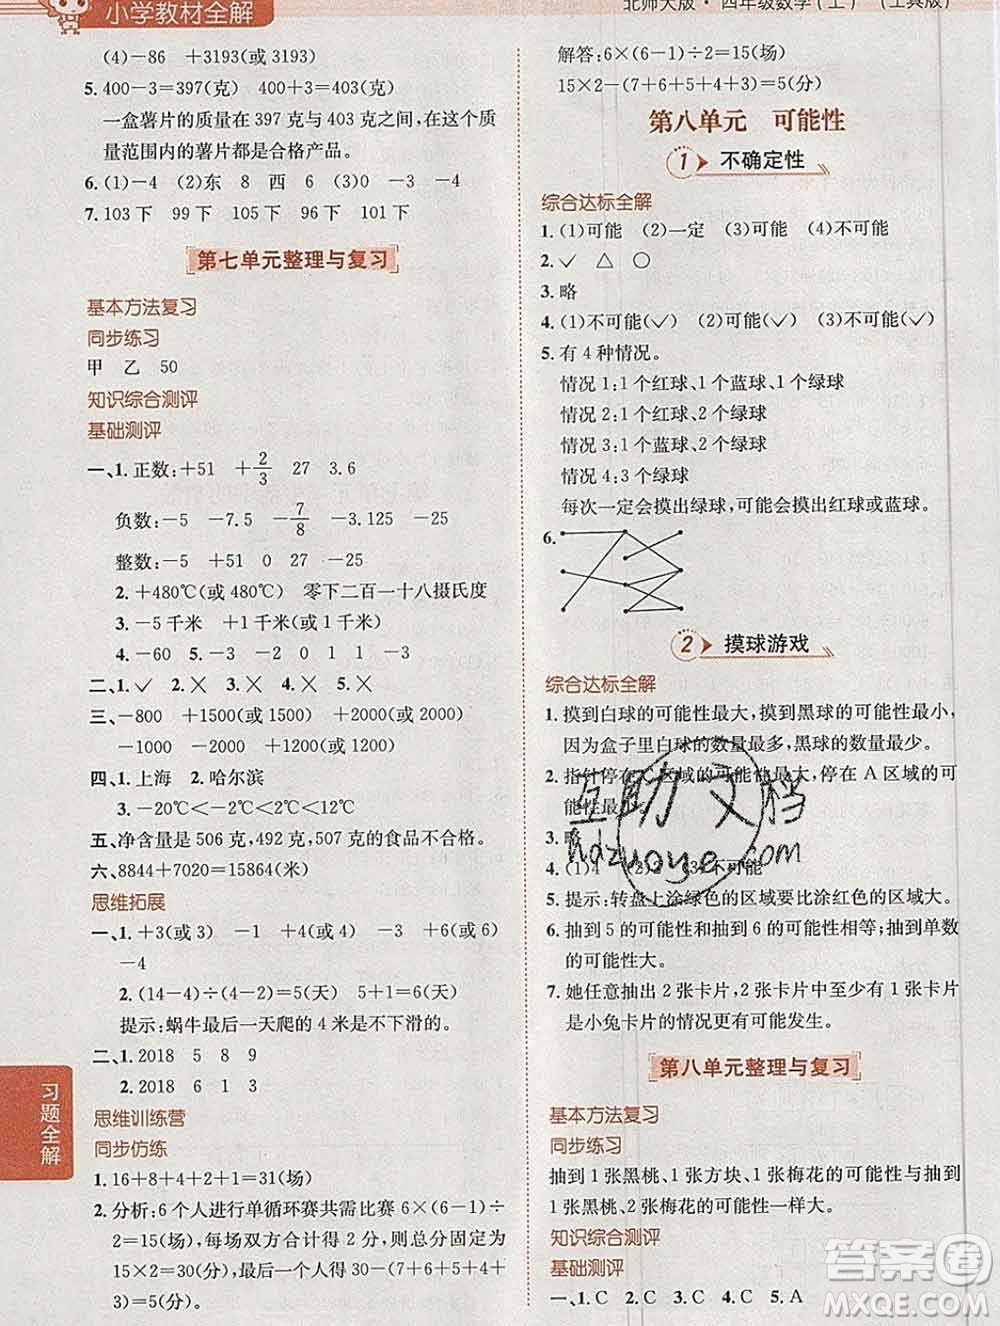 小学教材全解
北师大版·四年级数学(上) (工具版)
(4)-86 +3193(或3193)
5. 400-3=397(克) 400+3=403(克)
一盒薯片的质量在 397 克与 403 克之间,在这个质
量范围内的薯片都是合格产品。
6. (1)-4 (2)东 8 西 6 (3)0 -3 -4
7. 103下 99下 105下 96下 101下
第七单元整理与复习
基本方法复习
同步练习
甲 乙 50
知识综合测评
基础测评
一、1. 正数:+51 +2/3 27 3.6
负数:-5 -7.5 -7/8 -3.125 -25
整数:-5 +51 0 27 -25
2. +480℃(或 480℃) 零下二百一十八摄氏度
3. -5千米 +1100米(或1100米)
4. -60 5. -15 6. -3
二、1.✓ 2.✗ 3.✗ 4.✗ 5.✗
三、-800 +1500(或1500) +2000(或2000)
-1000 -2000 +1200(或1200)
四、1. 上海 2. 哈尔滨
3. -20℃<-2℃<2℃<20℃
五、净含量是 506 克,492 克,507 克的食品不合格。
六、8844+7020=15864(米)
思维拓展
一、1. +3(或3) -1 +4(或4) -5 +6(或6)
-4
2. (14-4)÷(4-2)=5(天) 5+1=6(天)
提示:蜗牛最后一天爬的 4 米是不下滑的。
二、1. 2018 5 8 9
2. 2018 6 1 3
思维训练营
同步仿练
1. 16+8+4+2+1=31(场)
2. 分析:6 个人进行单循环赛共需比赛 6×(6-1)÷
2=15(场),每场双方总计得 2 分,所以总分固定为
15×2=30(分),其余五人共得 7+6+5+4+
3)=5(分)。
习题全解
解答:6×(6-1)÷2=15(场)
15×2-(7+6+5+4+3)=5(分)
第八单元 可能性
1 不确定性
综合达标全解
1. (1)可能 (2)一定 (3)可能 (4)不可能
2. ✓ △ ○
3. 略
4. (1)不可能(✓) (2)可能(✓) (3)不可能(✓)
5. 有 4 种情况。
情况 1:1 个红球、1 个蓝球、1 个绿球
情况 2:1 个红球、2 个绿球
情况 3:1 个蓝球、2 个绿球
情况 4:3 个绿球
每次一定会摸出绿球,可能会摸出红球或蓝球。
6.
2 摸球游戏
综合达标全解
1. 摸到白球的可能性最大,摸到黑球的可能性最小,
因为盒子里白球的数量最多,黑球的数量最少。
2. 指针停在 C 区域的可能性最大,停在 A 区域的可
能性最小。
3. 略
4. (1)4 (2)2 (3)不可能
5. 提示:转盘上涂绿色的区域要比涂红色的区域大。
6. 抽到 5 的可能性和抽到 6 的可能性相等;抽到单数
的可能性大。
7. 她任意抽出 2 张卡片,2 张卡片中至少有 1 张卡片
是小兔卡片的情况更有可能发生。
第八单元整理与复习
基本方法复习
同步练习
抽到 1 张黑桃、1 张方块、1 张梅花的可能性与抽到
1 张黑桃、2 张梅花的可能性一样大。
知识综合测评
基础测评
一、1. C 2. C 3. C 4. C 5. A
互助文档
hdzuoye.com
答案圈
MXQE.COM